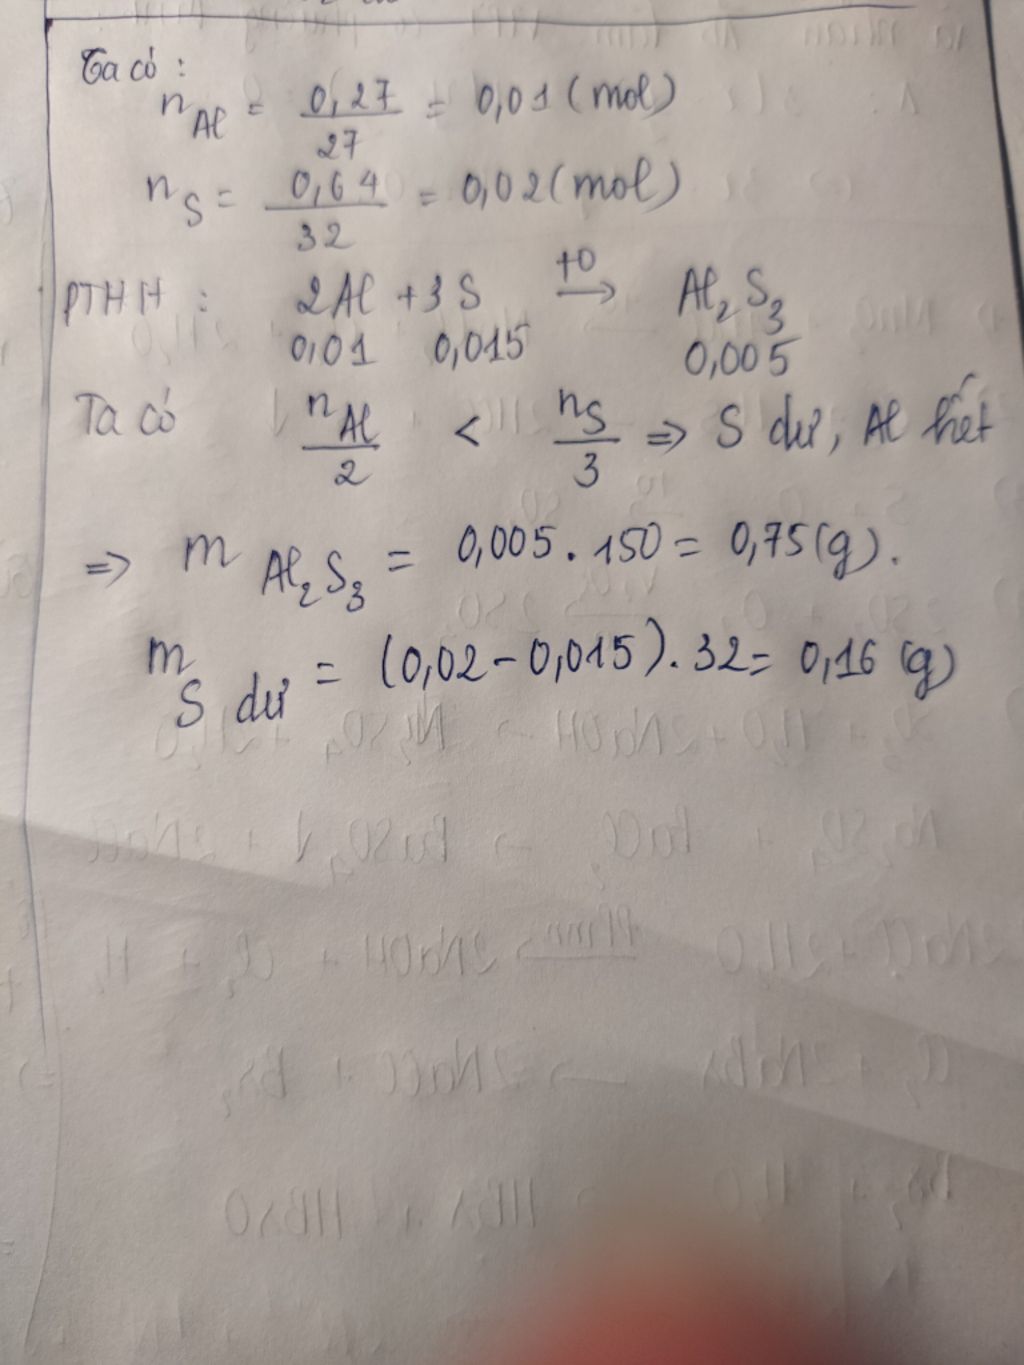 Ta có :
n Al = 0,27 / 27 = 0,01 (mol)
n S = 0,64 / 32 = 0,02 (mol)
PTHH : 2Al + 3S +0 → Al₂S₃
0,01 0,015 0,005
Ta có n Al / 2 < n S / 3 => S dư, Al hết
=> m Al₂S₃ = 0,005 . 150 = 0,75 (g).
m S dư = (0,02 - 0,015) . 32 = 0,16 (g)